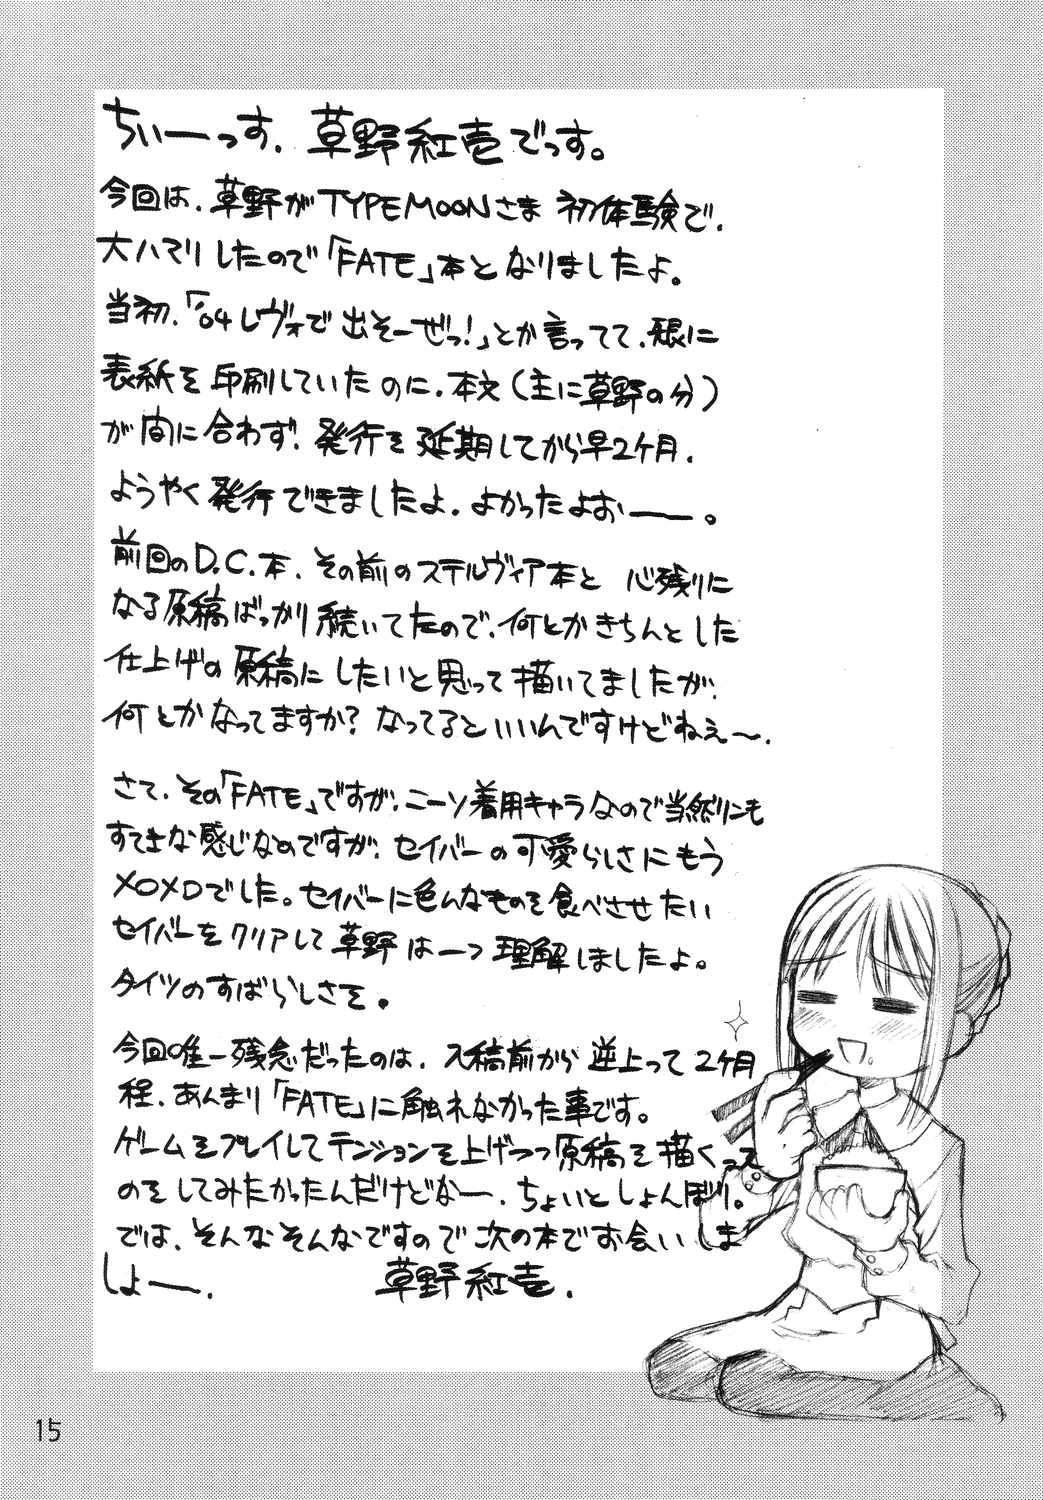 ちぃーっす、草野紅壱でっす。
今回は、草野がTYPEMOONさま 初体験で、
大ハマリしたので「FATE」本となりましたよ。
当初、「'04レヴォで出そーぜっ!」とか言ってて、既に
表紙を印刷していたのに、本文(主に草野の分)
が間に合わず、発行を延期してから早2ケ月、
ようやく発行できましたよ、よかったよおーー。
前回のD.C.本、その前のステルヴィア本と 心残りに
なる原稿ばっかり続いてたので、何とかきちんとした
仕上げの原稿にしたいと思って描いてましたが、
何とかなってますか?なってるといいんですけどねぇ〜、
さて、その「FATE」ですが、ニーソ着用キャラなので当然リンも
すてきな感じなのですが、セイバーの可愛らしさにもう
メロメロでした。セイバーに色んなものを食べさせたい
セイバーをクリアして草野は一つ理解しましたよ。
タイツのすばらしさを。
今回唯一残念だったのは、入稿前から逆上って2ケ月
程、あんまり「FATE」に触れなかった事です。
ゲームをプレイしてテンションを上げつつ原稿を描くって
のをしてみたかったんだけどなー、ちょいとしょんぼり。
では、そんなそんなですので次の本でお会いしま
しょー、 草野紅壱、
15